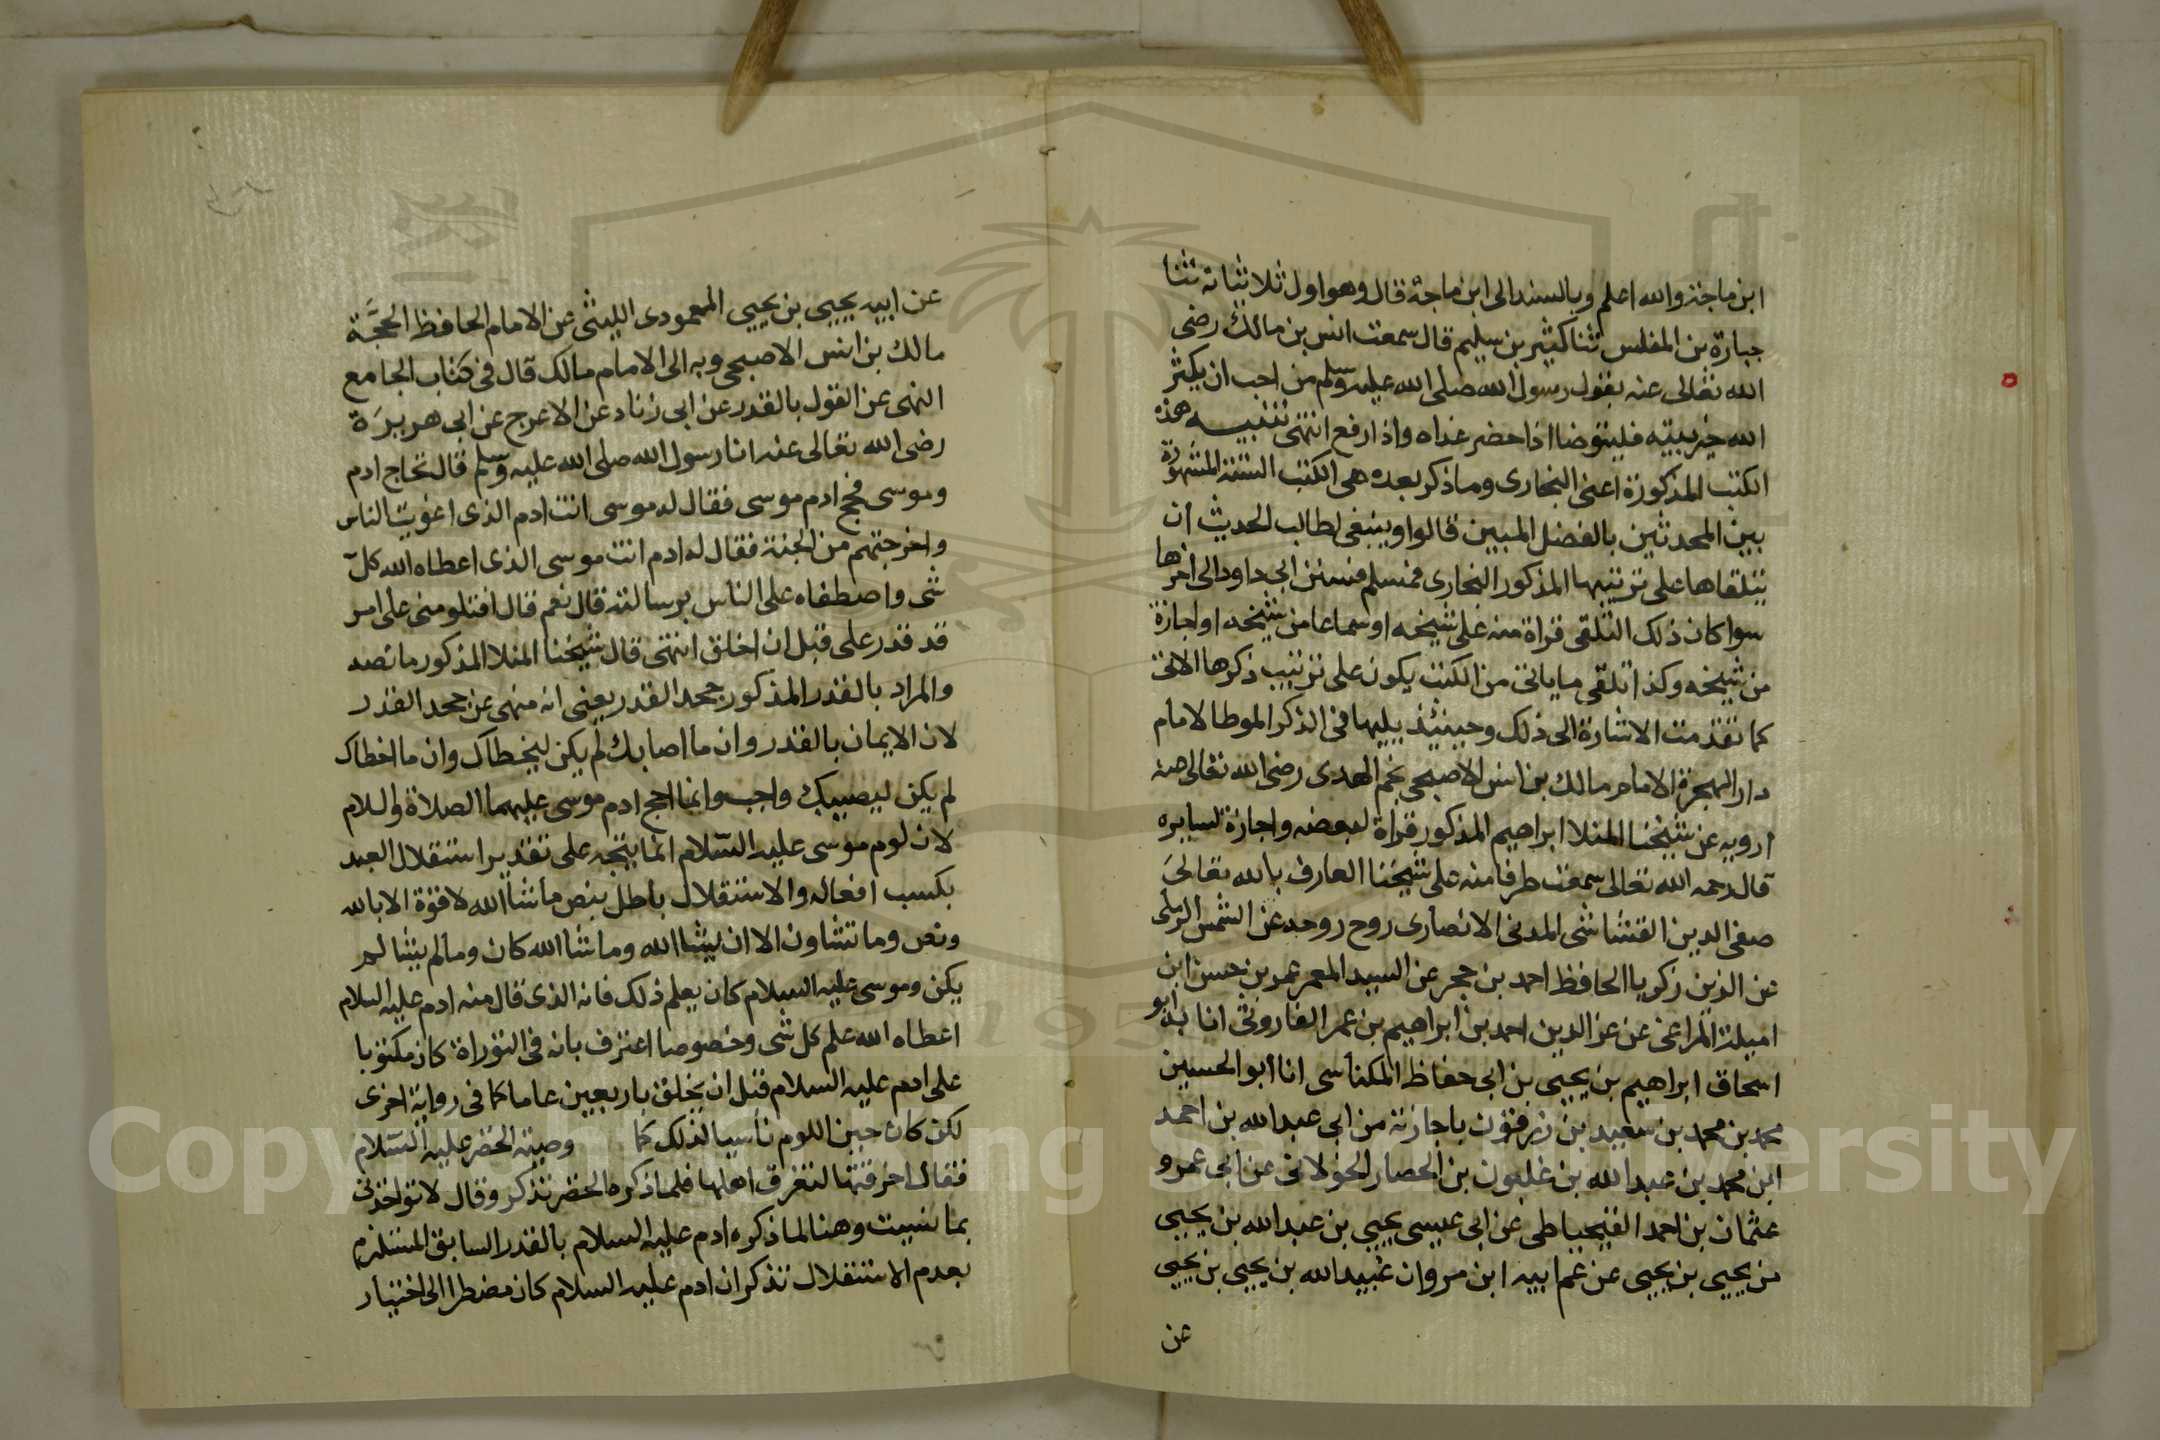 ابن ماجة والله اعلم وبالسند الى ابن ماجة قال وهو اول ثلاثياته ثنا
جبارة بن المغلس ثنا كثير بن سليم قال سمعت انس بن مالك رضى
الله تعالى عنه يقول رسول الله صلى الله عليه وسلم من احب ان يكثر
الله خير بيته فليتوضا اذا حضر غداه واذا رفع انتهى تنبيه هذه
الكتب المذكورة اعنى البخارى وما ذكر بعده هى الكتب الستة المشهورة
بين المحدثين بالفضل المبين قالوا وينبغى لطالب الحديث ان
يتلقاها على ترتيبها المذكور البخارى فمسلم فسنن ابى داود الى اخرها
سوا كان ذلك التلقى قراة منه على شيخه او سماعا من شيخه او اجازة
من شيخه وكذا تلقى ما ياتى من الكتب يكون على ترتيب ذكرها الاتى
كما تقدمت الاشارة الى ذلك وحينئذ يليها فى الذكر الموطا لامام
دار الهجرة الامام مالك بن انس الاصبحى نجم الهدى رضى الله تعالى عنه
ارويه عن شيخنا المنلا ابراهيم المذكور قراة لبعضه واجازة لسايره
قال رحمه الله تعالى سمعت طرفا منه على شيخنا العارف بالله تعالى
صفى الدين القشاشى المدنى الانصارى روح روحه عن الشمس الرملى
عن الزين زكريا الحافظ احمد بن حجر عن السيد المعمر عمر بن حسن ابن
اميلة المراغى عن عز الدين احمد بن ابراهيم بن عمر الفاروثى انا به ابو
اسحاق ابراهيم بن يحيى بن ابى حفاظ المكناسى انا ابو الحسين
محمد بن محمد بن سعيد بن زرقون باجازته من ابى عبد الله بن احمد
ابن محمد بن عبد الله بن غلبون بن الحصار الخولانى عن ابى عمرو
عثمان بن احمد القيجباطى عن ابى عيسى يحيى بن عبد الله بن يحيى
بن يحيى بن يحيى عن عم ابيه ابن مروان عبيد الله بن يحيى بن يحيى
عن
عن ابيه يحيى بن يحيى المعمودى الليثى عن الامام الحافظ الحجّة
مالك بن انس الاصبحى وبه الى الامام مالك قال فى كتاب الجامع
النهى عن القول بالقدر عن ابى زناد عن الاعرج عن ابى هريرة
رضى الله تعالى عنه انا رسول الله صلى الله عليه وسلم قال تحاج ادم
وموسى فحج ادم موسى فقال له موسى انت ادم الذى اغويت الناس
واخرجتهم من الجنة فقال له ادم انت موسى الذى اعطاه الله كل
شى واصطفاه على الناس برسالته قال نعم قال افتلومنى على امر
قد قدر على قبل ان اخلق انتهى قال شيخنا المنلا المذكور ما نصه
والمراد بالقدر المذكور جحد القدر يعنى انه منهى عن جحد القدر
لان الايمان بالقدر وان ما اصابك لم يكن ليخطاك وان ما اخطاك
لم يكن ليصيبك واجب وانما احج ادم موسى عليهما الصلاة والسلام
لان لوم موسى عليه السلام انما يتجه على تقدير استقلال العبد
بكسب افعاله والاستقلال باطل بنص ما شا الله لا قوة الا بالله
ونص وما تشاون الا ان يشا الله وما شا الله كان وما لم يشا لم
يكن وموسى عليه السلام كان يعلم ذلك فانه الذى قال منه ادم عليه السلام
اعطاه الله علم كل شى وخصوصا اعترف بانه فى التوراة كان مكتوبا
على ادم عليه السلام قبل ان يخلق باربعين عاما كما فى رواية اخرى
لكن كان حين اللوم ناسيا لذلك كما وصيته الخضر عليه السلام
فقال اخرقتها لتغرق اهلها فلما ذكره الخضر تذكر وقال لا تواخذنى
بما نسيت وهنا لما ذكره ادم عليه السلام بالقدر السابق المستلزم
بعدم الاستقلال تذكر ان ادم عليه السلام كان مضطرا الى اختيار